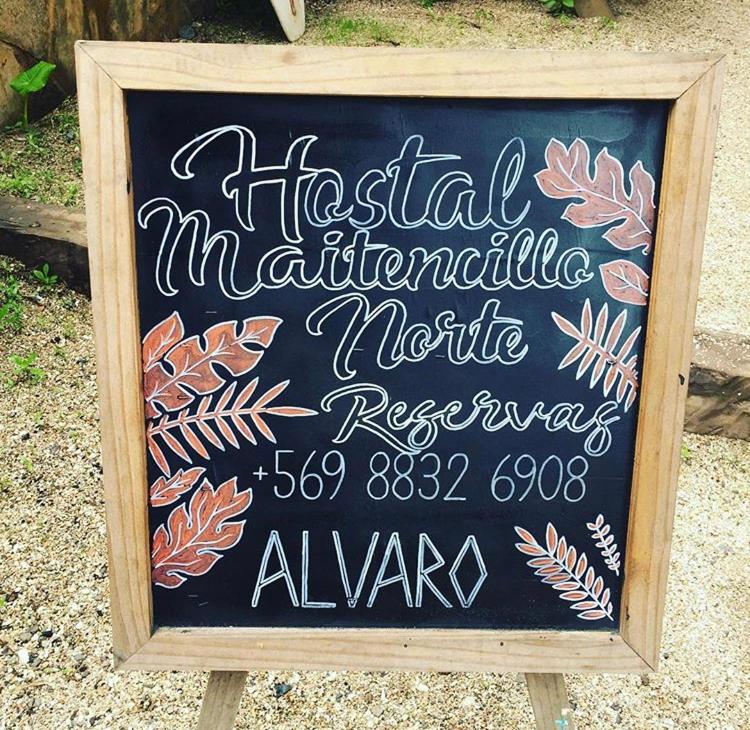 Hostal
Maitencillo
Norte
Reservas
+569 8832 6908
ALVARO